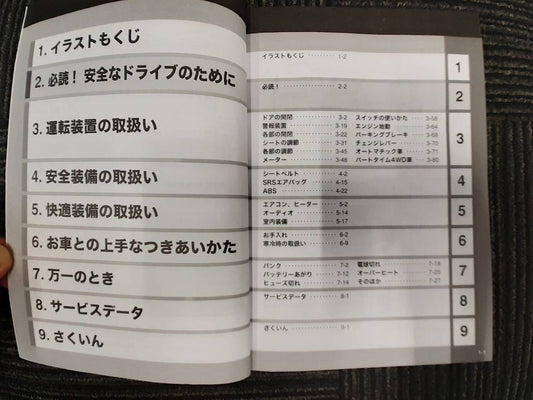 1. イラストもくじ
2. 必読！ 安全なドライブのために
3. 運転装置の取扱い
4. 安全装備の取扱い
5. 快適装備の取扱い
6. お車との上手なつきあいかた
7. 万一のとき
8. サービスデータ
9. さくいん
イラストもくじ ・・・・・・・・・ 1-2
1
必読！ ・・・・・・・・・・・・・・・・ 2-2
2
ドアの開閉 ・・・・・・・・・・・・ 3-2
警報装置 ・・・・・・・・・・・・・・ 3-19
各部の開閉 ・・・・・・・・・・・・ 3-22
シートの調節 ・・・・・・・・・・ 3-31
各部の調節 ・・・・・・・・・・・・ 3-45
メーター ・・・・・・・・・・・・・・ 3-48
スイッチの使いかた ・・・・ 3-58
エンジン始動 ・・・・・・・・・・ 3-64
パーキングブレーキ ・・・・ 3-68
チェンジレバー ・・・・・・・・ 3-70
オートマチック車 ・・・・・・ 3-71
パートタイム4WD車 ・・・・ 3-80
3
シートベルト ・・・・・・・・・・ 4-2
SRSエアバッグ ・・・・・・・・ 4-15
ABS ・・・・・・・・・・・・・・・・・・ 4-22
4
エアコン、ヒーター ・・・・ 5-2
オーディオ ・・・・・・・・・・・・ 5-14
室内装備 ・・・・・・・・・・・・・・ 5-17
5
お手入れ ・・・・・・・・・・・・・・ 6-2
寒冷時の取扱い ・・・・・・・・ 6-9
6
パンク ・・・・・・・・・・・・・・・・ 7-2
バッテリーあがり ・・・・・・ 7-12
ヒューズ切れ ・・・・・・・・・・ 7-14
電球切れ ・・・・・・・・・・・・・・ 7-18
オーバーヒート ・・・・・・・・ 7-25
そのほか ・・・・・・・・・・・・・・ 7-27
7
サービスデータ ・・・・・・・・ 8-1
8
さくいん ・・・・・・・・・・・・・・ 9-1
9
1-1